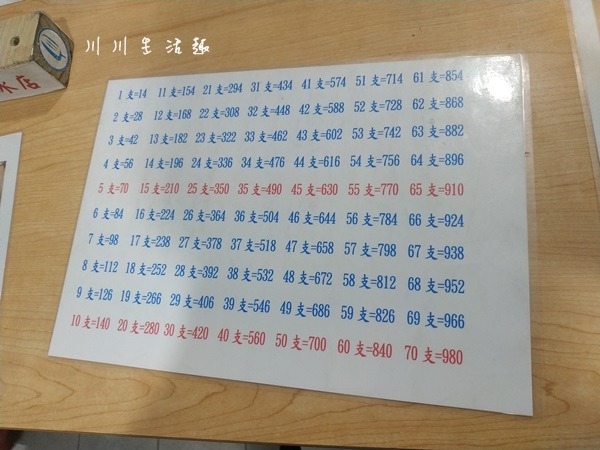 川川生活趣
水店
1 支=14 11 支=154 21 支=294 31 支=434 41 支=574 51 支=714 61 支=854
2 支=28 12 支=168 22 支=308 32 支=448 42 支=588 52 支=728 62 支=868
3 支=42 13 支=182 23 支=322 33 支=462 43 支=602 53 支=742 63 支=882
4 支=56 14 支=196 24 支=336 34 支=476 44 支=616 54 支=756 64 支=896
5 支=70 15 支=210 25 支=350 35 支=490 45 支=630 55 支=770 65 支=910
6 支=84 16 支=224 26 支=364 36 支=504 46 支=644 56 支=784 66 支=924
7 支=98 17 支=238 27 支=378 37 支=518 47 支=658 57 支=798 67 支=938
8 支=112 18 支=252 28 支=392 38 支=532 48 支=672 58 支=812 68 支=952
9 支=126 19 支=266 29 支=406 39 支=546 49 支=686 59 支=826 69 支=966
10 支=140 20 支=280 30 支=420 40 支=560 50 支=700 60 支=840 70 支=980